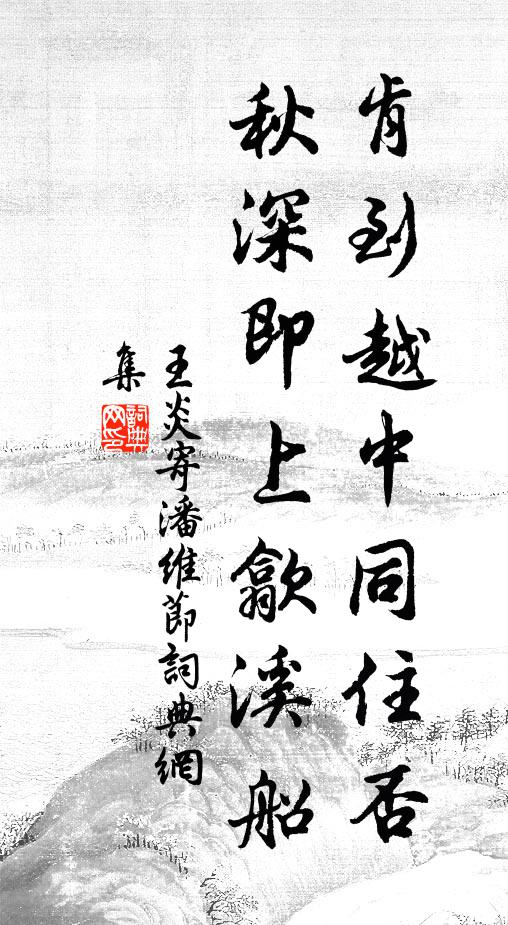 肯到越中同住否
秋深即上歙溪船
王炎寄潘維節詞典網
集
詞典網印